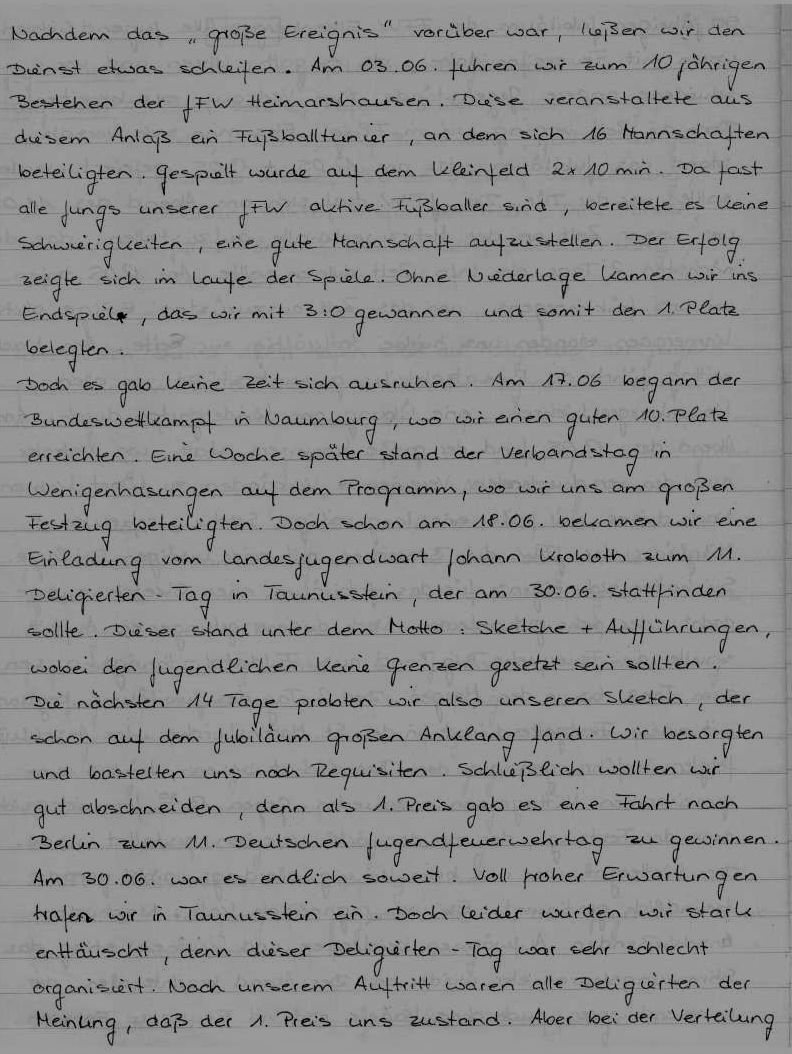 Nachdem das „große Ereignis" vorüber war, ließen wir den
Dienst etwas schleifen. Am 03.06. fuhren wir zum 10 jährigen
Bestehen der JFW Heimarshausen. Diese veranstaltete aus
diesem Anlaß ein Fußballtunier, an dem sich 16 Mannschaften
beteiligten. Gespielt wurde auf dem Kleinfeld 2x10 min. Da fast
alle Jungs unserer JFW aktive Fußballer sind, bereitete es keine
Schwierigkeiten, eine gute Mannschaft aufzustellen. Der Erfolg
zeigte sich im Laufe der Spiele. Ohne Niederlage kamen wir ins
Endspiel, das wir mit 3:0 gewannen und somit den 1. Platz
belegten.
Doch es gab keine Zeit sich ausruhen. Am 17.06 begann der
Bundeswettkampf in Naumburg, wo wir einen guten 10. Platz
erreichten. Eine Woche später stand der Verbandstag in
Wenigenhasungen auf dem Programm, wo wir uns am großen
Festzug beteiligten. Doch schon am 18.06. bekamen wir eine
Einladung vom Landesjugendwart Johann Kroboth zum 11.
Deligierten-Tag in Taunusstein, der am 30.06. stattfinden
sollte. Dieser stand unter dem Motto: Sketche + Aufführungen,
wobei den Jugendlichen keine Grenzen gesetzt sein sollten.
Die nächsten 14 Tage probten wir also unseren Sketch, der
schon auf dem Jubiläum großen Anklang fand. Wir besorgten
und bastelten uns noch Requisiten. Schließlich wollten wir
gut abschneiden, denn als 1. Preis gab es eine Fahrt nach
Berlin zum 11. Deutschen Jugendfeuerwehrtag zu gewinnen.
Am 30.06. war es endlich soweit. Voll froher Erwartungen
trafen wir in Taunusstein ein. Doch leider wurden wir stark
enttäuscht, denn dieser Deligierten-Tag war sehr schlecht
organisiert. Nach unserem Auftritt waren alle Deligierten der
Meinung, daß der 1. Preis uns zustand. Aber bei der Verteilung